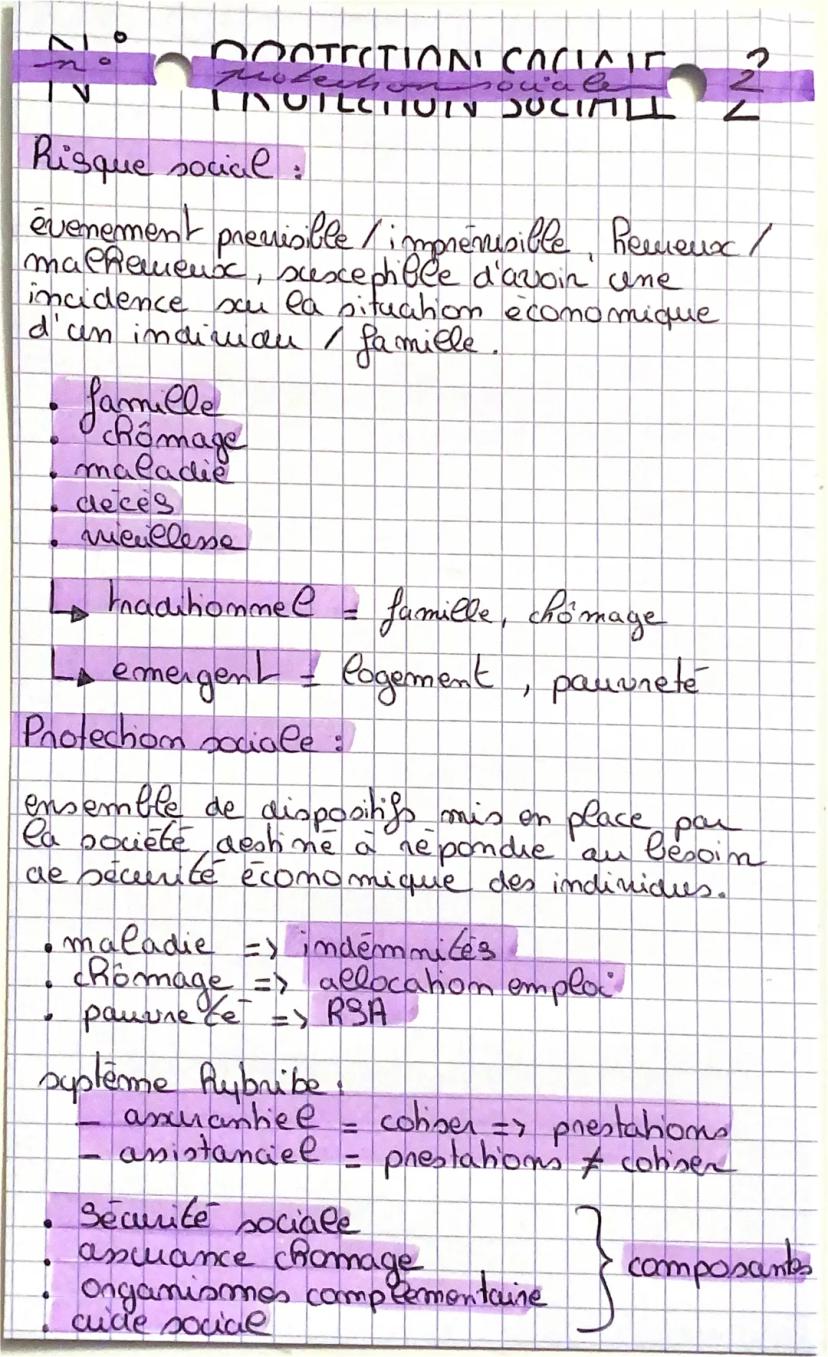 N° PROTECTION SOCIALE 2
n° protection sociale
Risque social :
évenement previsible / imprévisible, heureux /
malheureux, susceptible d'avoir une
incidence sur la situation économique
d'un individu / famille.
• famille
• chômage
• maladie
• décès
• vieillesse
↳ traditionnel = famille, chômage
↳ emergent = logement, pauvreté
Protection sociale :
ensemble de dispositifs mis en place par
la société, destiné à répondre au besoin
de sécurité économique des individus.
• maladie => indémnités
• chômage => allocation emploi
• pauvreté => RSA
système hybribe :
- assurantiel = cotiser => prestations
- assistanciel = prestations ≠ cotiser
• sécurité sociale
• assurance chomage
• organismes complémentaire
• aide sociale
} composants